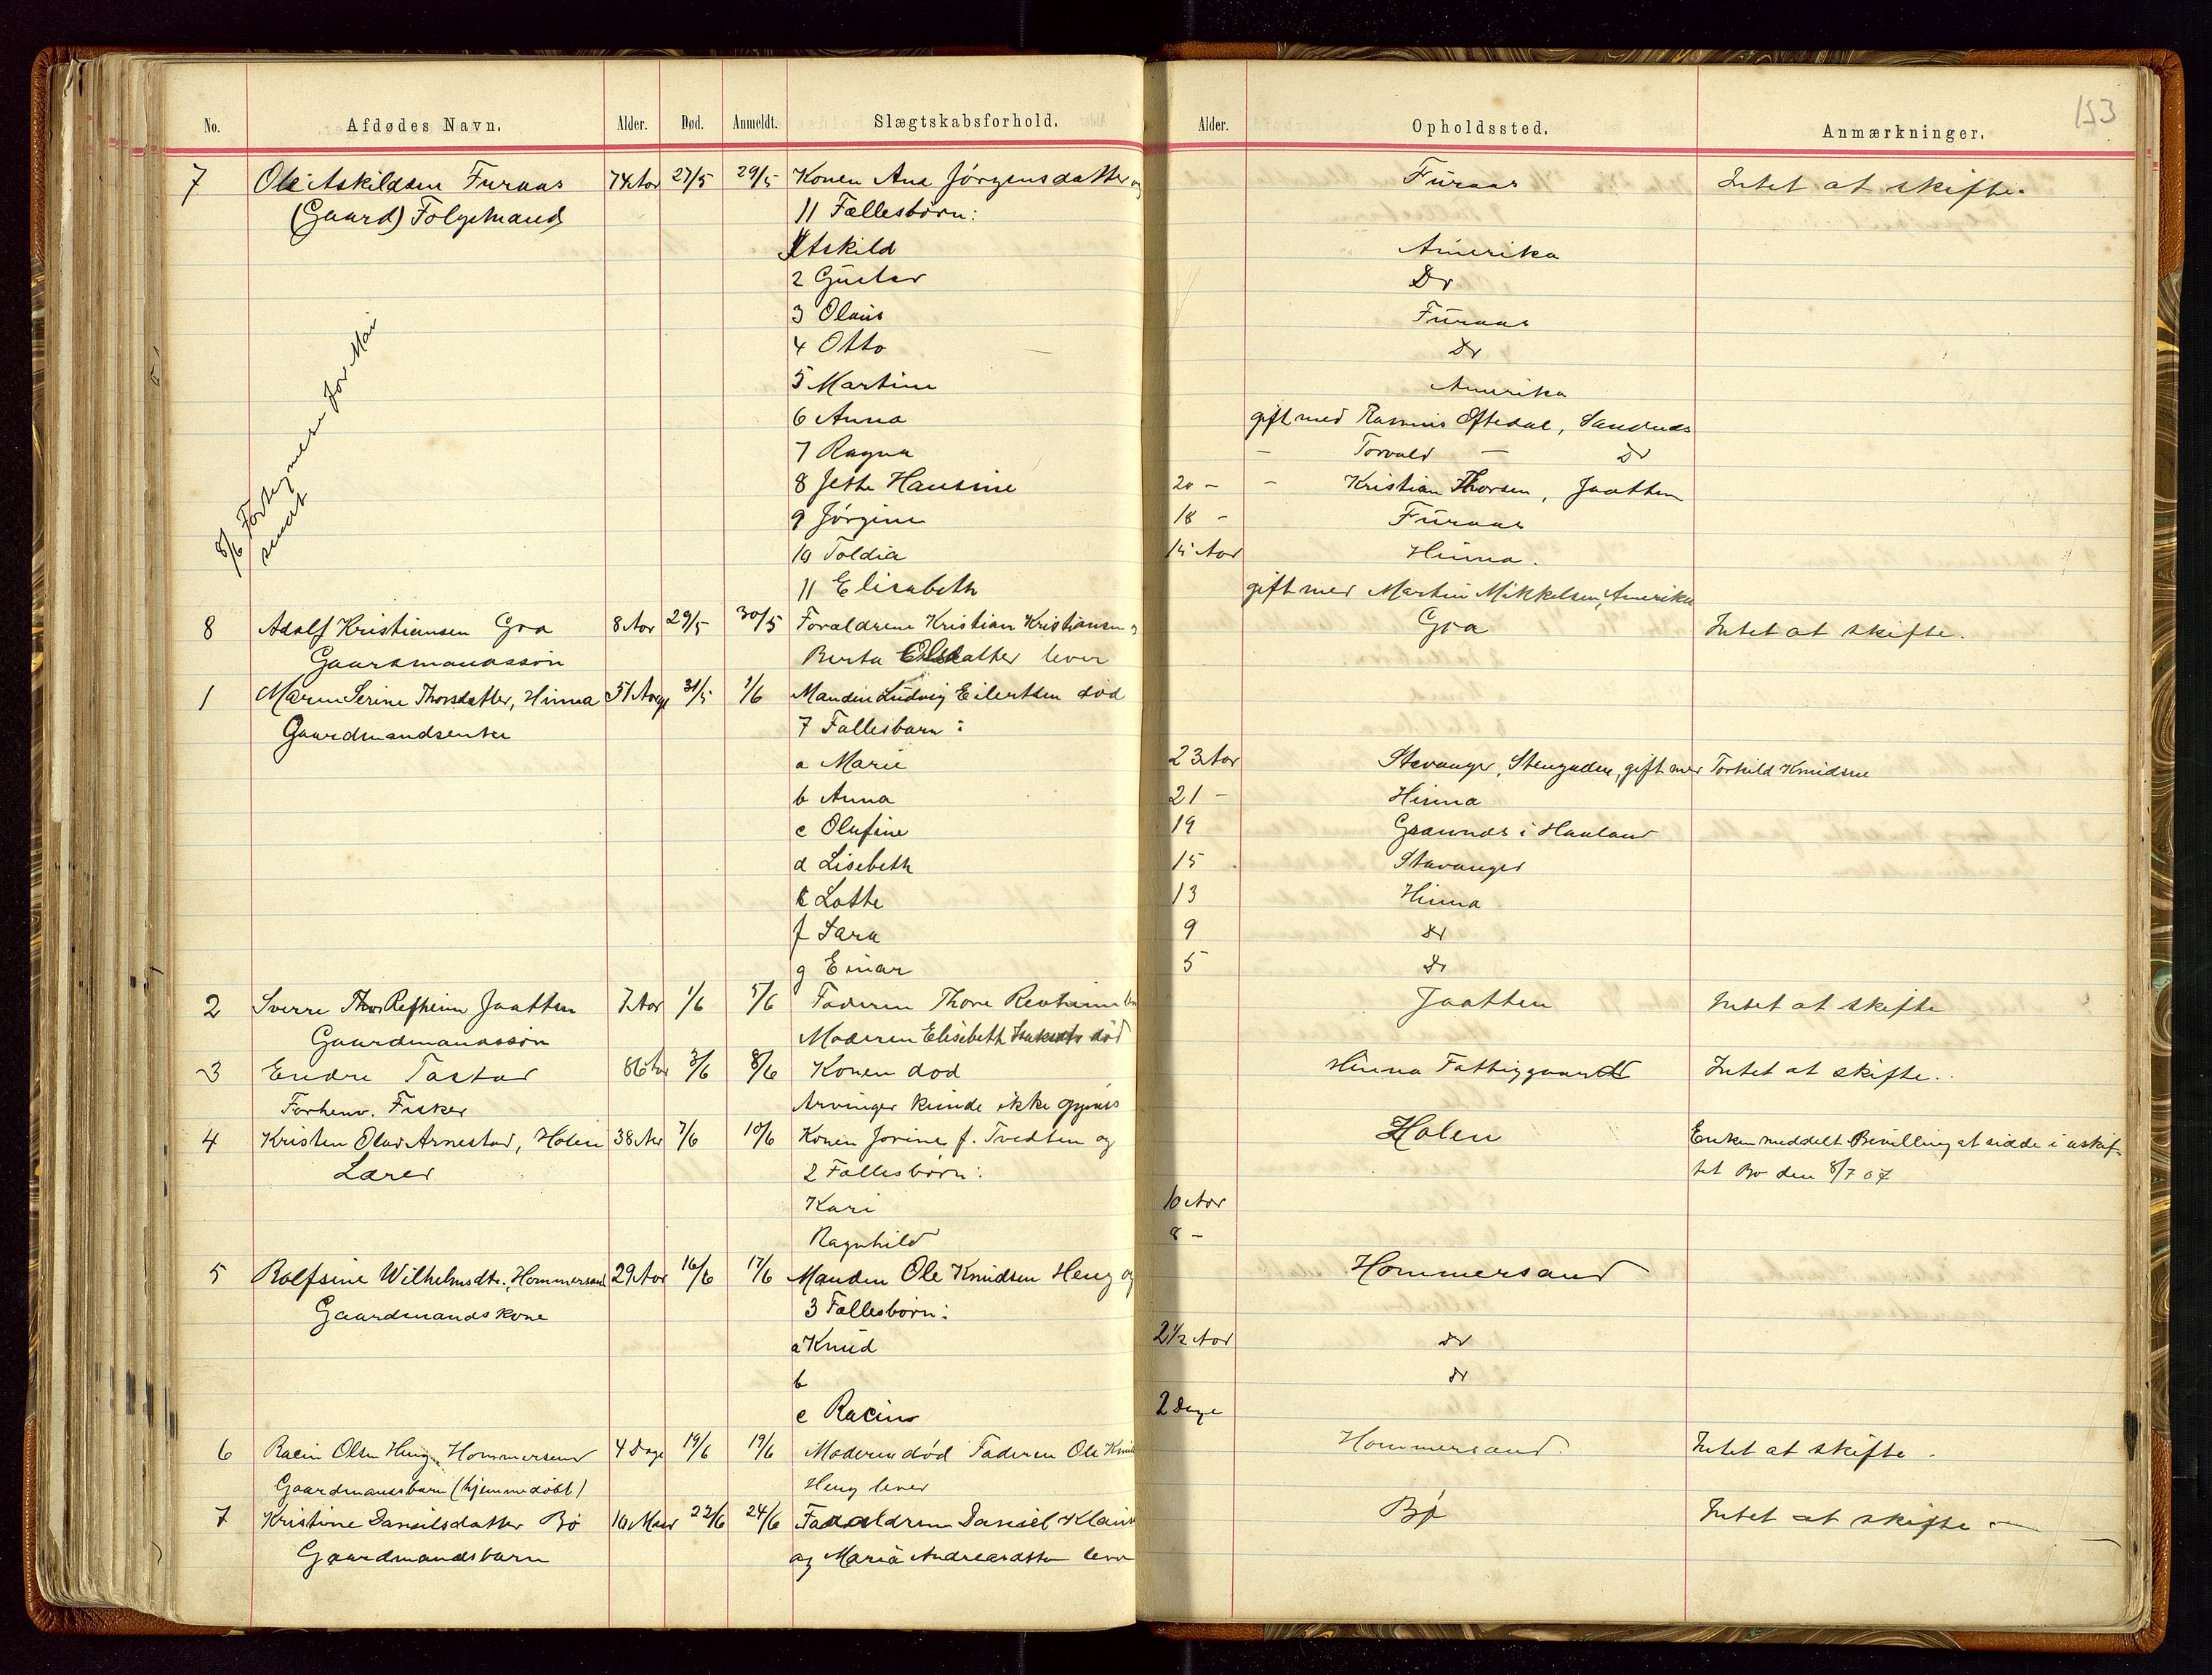 153
No. Afdødes Navn. Alder. Død. Anmeldt. Slægtskabsforhold. Alder. Opholdssted. Anmærkninger.
7 Ole Askildsen Furaas 74 Aar 27/5 29/5 Konen Ana Jörgensdatter og Furaas Intet at skifte.
(Gaard) Folgemand 11 Fællesbörn:
1 Askild Amerika
2 Gustav Do
3 Olaus Furaas
4 Otto Do
5 Martine Amerika
6 Anna gift med Rasmus Oftedal, Sandnes
7 Ragna - Torvald - Do
8 Jette Hansine 20 - - Kristian Thorsen, Jaatten
9 Jörgine 18 - Furaas
10 Toldia 15 Aar Hinna.
11 Elisabeth gift med Martin Mikkelsen, Amerika
8/6 Fortegnelse for Mai
sendt
8 Adolf Kristiansen Goa 8 Aar 29/5 30/5 Forældrene Kristian Kristiansen og Goa Intet at skifte.
Gaardmandssön Berta Olsdatter lever
1 Maren Serine Thorsdatter, Hinna 51 Aar 31/5 1/6 Manden Ludvig Eilertsen död
Gaardmandsenke 7 Fællesbarn:
a Marie 23 Aar Stavanger, Stengaden, gift med Torkild Knudsen
b Anna 21 - Hinna
c Olufine 19 Grannes i Haaland
d Lisebeth 15 Stavanger
e Lotte 13 Hinna
f Sara 9 do
g Einar 5 do
2 Sverre Thor Refheim Jaatten 7 Aar 1/6 5/6 Faderen Thore Revheim Jaatten Intet at skifte
Gaardmandssön Moderen Elisebeth död
3 Endre Tastad 86 Aar 3/6 8/6 Konen död Hinna Fattiggaard Intet at skifte.
Forhenv. Fisker Arvinger kunde ikke opgives
4 Kristen Olav Arnestad, Holen 38 Aar 7/6 10/6 Konen Jorine f. Tvedten og Holen Enken meddelt Bevilling at sidde i uskif-
Lærer 2 Fællesbörn: tet Bo den 8/7 07
Kari 10 Aar
Ragnhild 8 -
5 Rolfsine Wilhelmsdtr. Hommersand 29 Aar 16/6 17/6 Manden Ole Knudsen Heng og Hommersand
Gaardmandskone 3 Fællesbörn:
a Knud 2 1/2 Aar do
b do
c Racin 2 Dage
6 Racin Olsen Heng, Hommersand 4 Dage 19/6 19/6 Moderen död Faderen Ole Hommersand. Intet at skifte.
Gaardmandsbarn (hjemmedöbt) Heng lever
7 Kristine Danielsdatter Bö 10 Maan 22/6 24/6 Forældrene Daniel Bø Intet at skifte
Gaardmandsbarn og Maria Andreasdatter lever